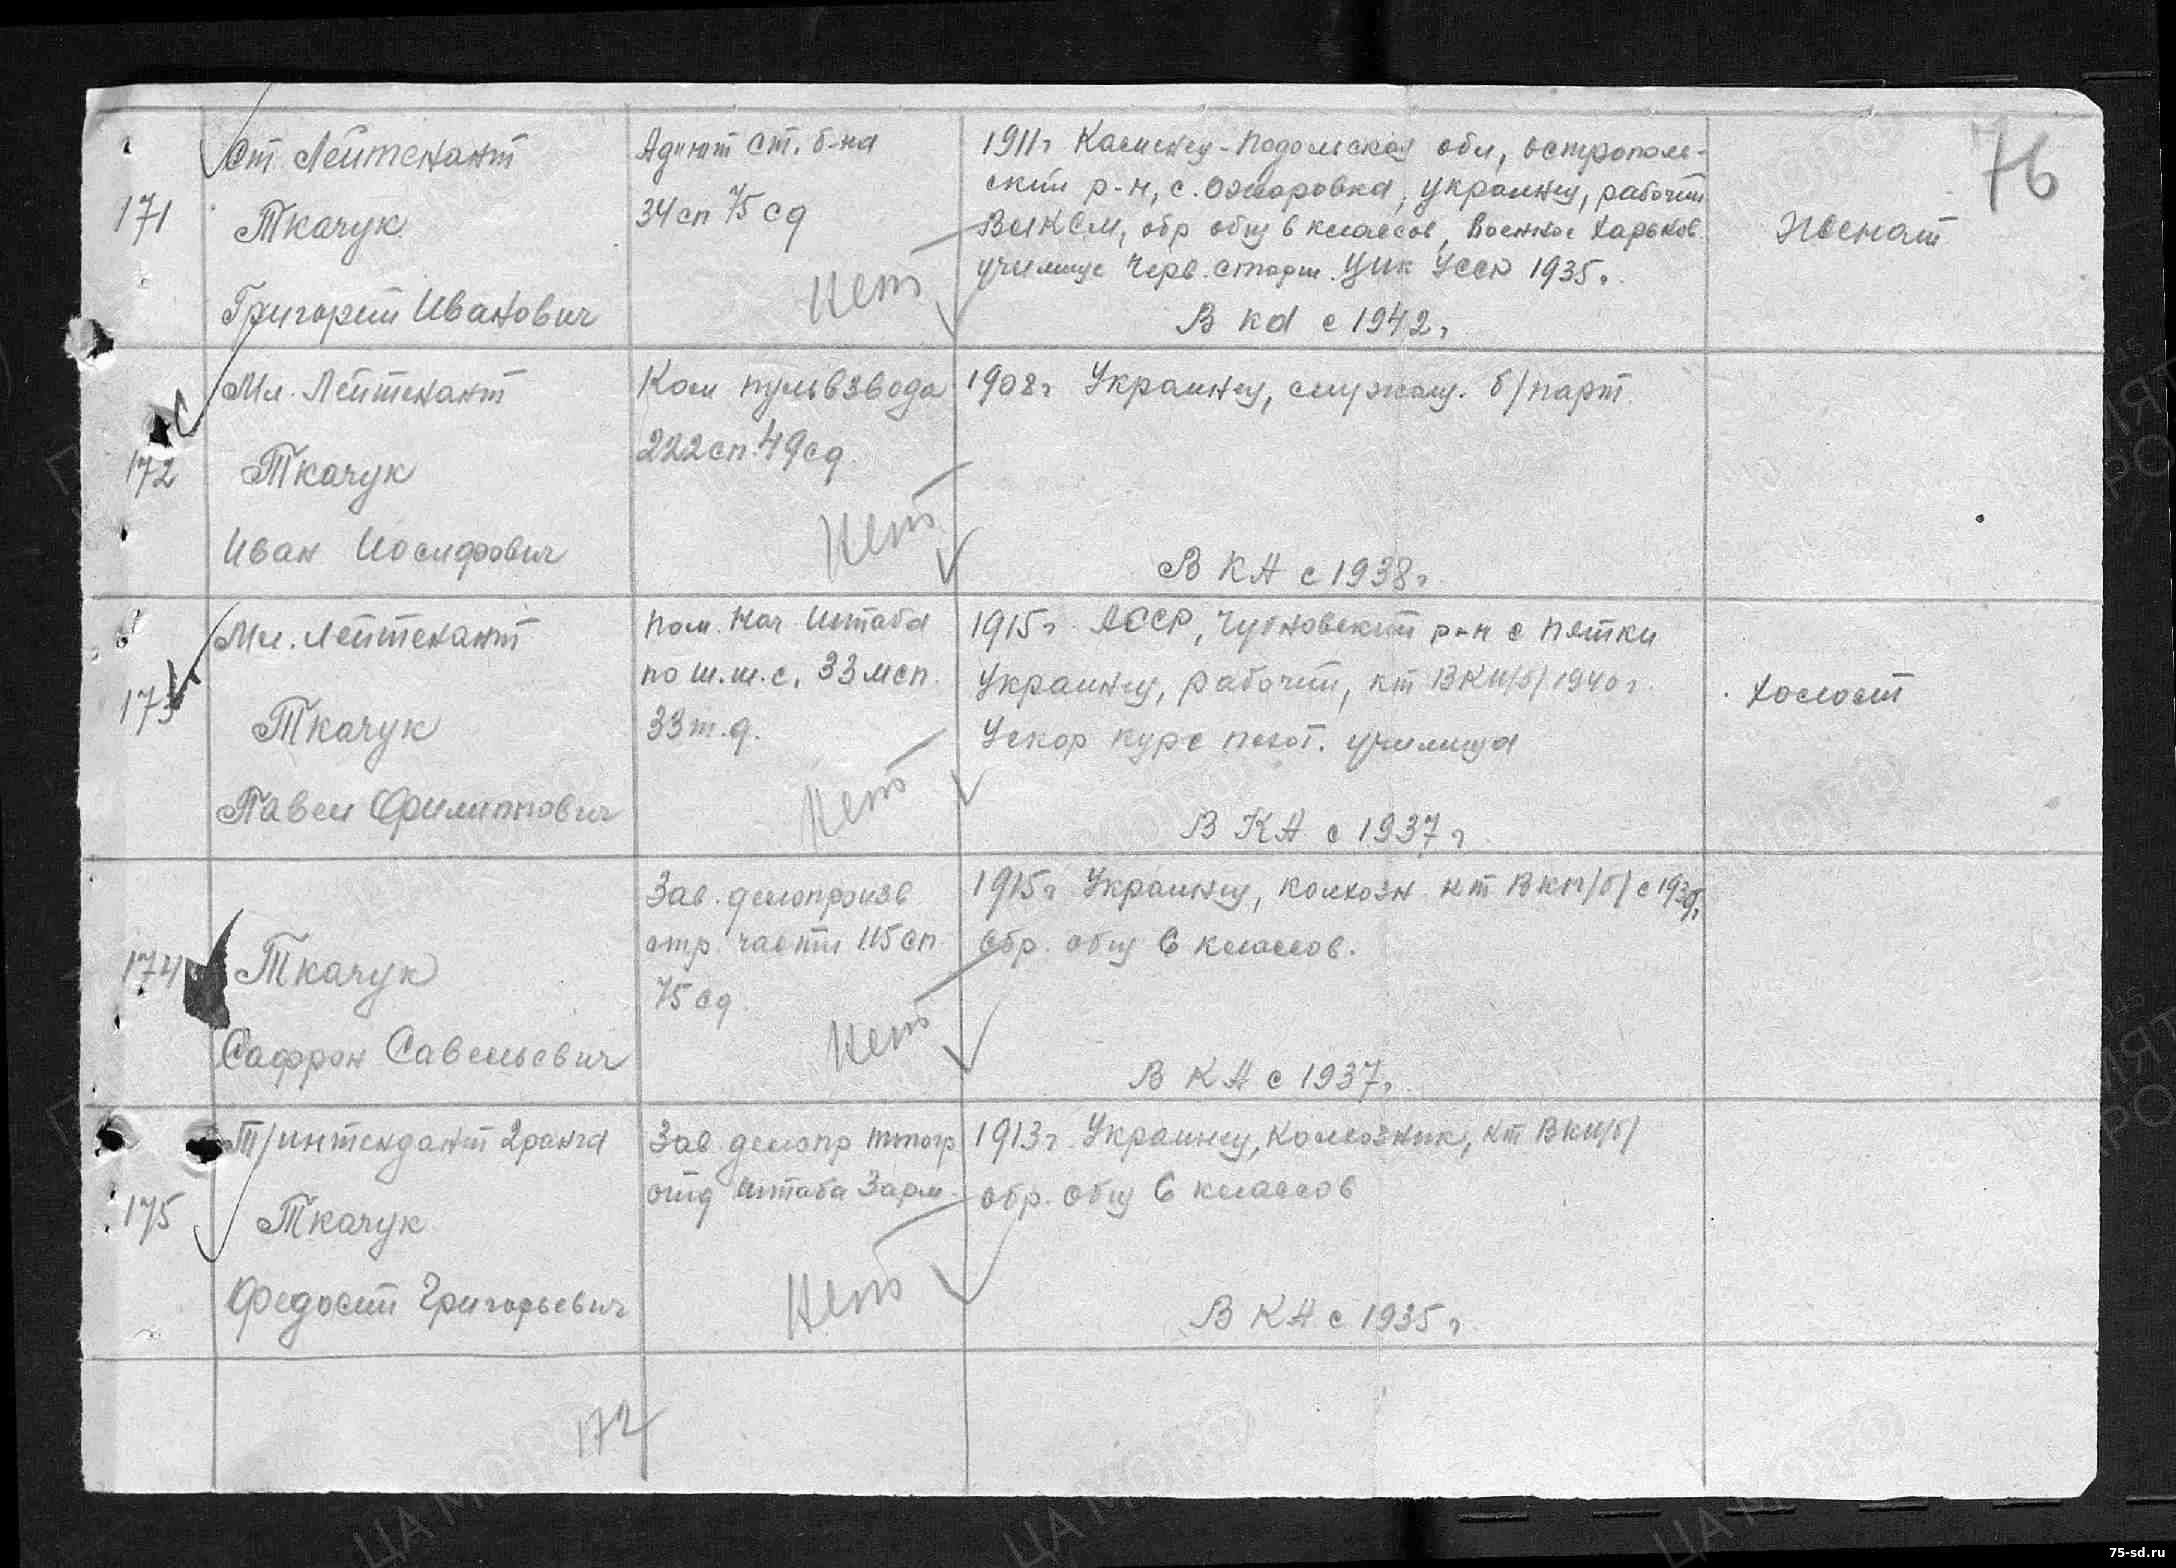 76
171
Ст. Лейтенант
Ткачук
Григорий Иванович
Адъют ст. б-на
34 сп 75 сд
Нет
1911 г Каменец-Подольская обл, острополь-
ский р-н, с. Ожаровка, украинец, рабочий
ВЛКСМ, обр общ 6 классов, Военное Харьков.
училище Черв. старш. ЦИК УССР 1935 г.
В КА с 1942 г
Женат
172
Мл. Лейтенант
Ткачук
Иван Иосифович
Ком пульвзвода
222 сп 49 сд
Нет
1908 г Украинец, служащ. б/парт.
В КА с 1938 г
173
Мл. Лейтенант
Ткачук
Павел Филиппович
Пом. Нач Штаба
по ш.ш.с. 33 мсп.
33 т.д.
Нет
1915 г. АССР, Чудновский р-н с Пятки
Украинец, рабочий, кт ВКП/б/ 1940 г.
Ускор курс пехот. училища
В КА с 1937 г
Холост
174
Ткачук
Сафрон Савельевич
Зав. делопроизв
стр. части 115 сп
75 сд.
Нет
1915 г Украинец, колхозн кт ВКП/б/ с 1939 г.
Обр. общ 6 классов.
В КА с 1937 г.
175
Т/интендант 2 ранга
Ткачук
Федосий Григорьевич
Зав делопр топогр
отд штаба 3 арм.
Нет
1913 г. Украинец, Колхозник, кт ВКП/б/
обр. общ 6 классов
В КА с 1935 г.
172
ЦА МОРФ
75-sd.ru